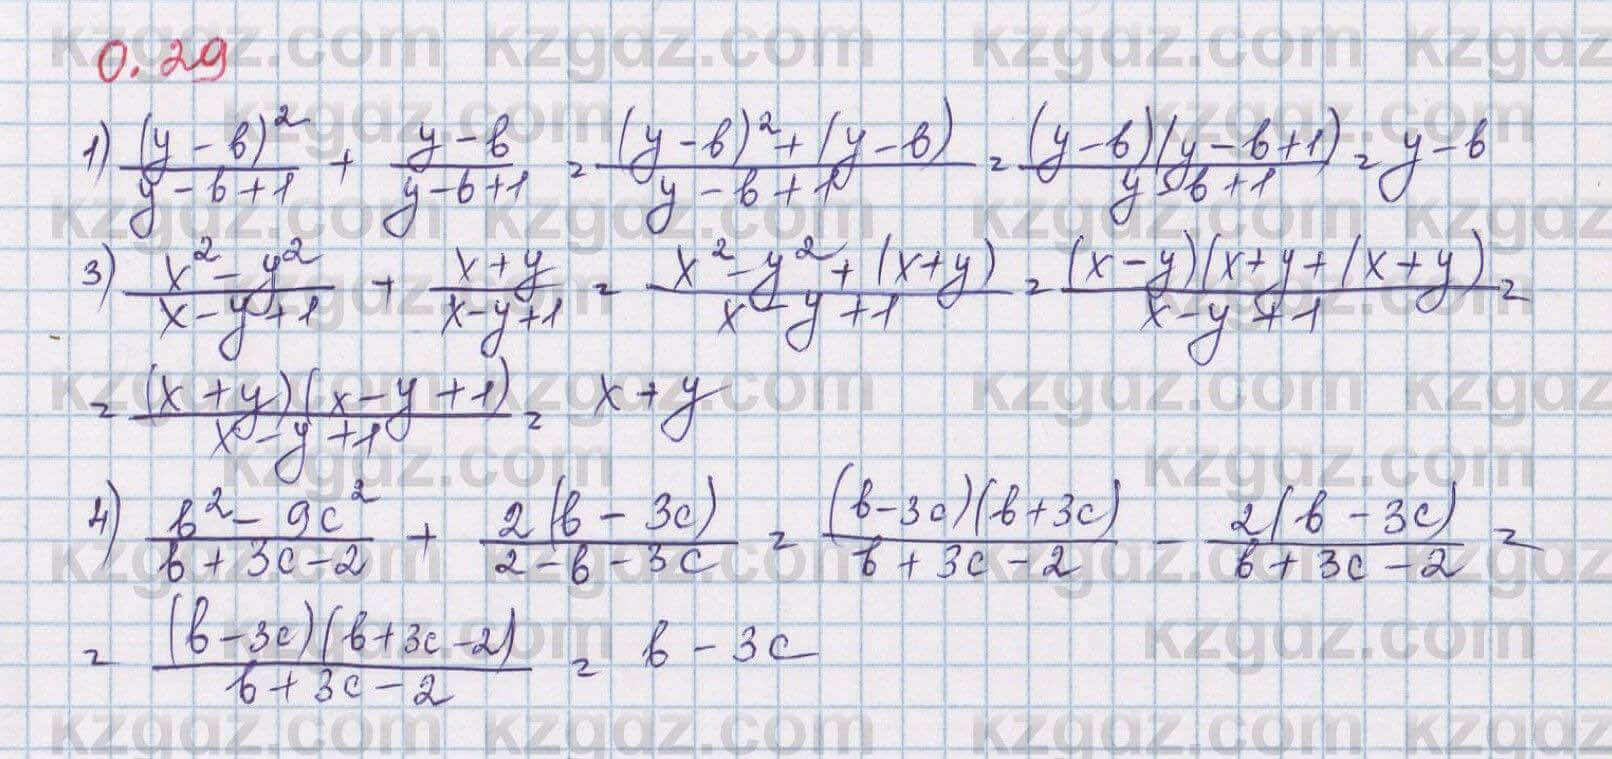 0.29
1) (y-b)²/(y-b+1) + (y-b)/(y-b+1) = ((y-b)²+(y-b))/(y-b+1) = (y-b)(y-b+1)/(y-b+1) = y-b
3) (x²-y²)/(x-y+1) + (x+y)/(x-y+1) = (x²-y²+(x+y))/(x-y+1) = (x-y)(x+y+(x+y)/(x-y+1) =
= (x+y)(x-y+1)/(x-y+1) = x+y
4) (b²-9c²)/(b+3c-2) + 2(b-3c)/(2-b-3c) = (b-3c)(b+3c)/(b+3c-2) - 2(b-3c)/(b+3c-2) =
= (b-3c)(b+3c-2)/(b+3c-2) = b-3c
kzgdz.com